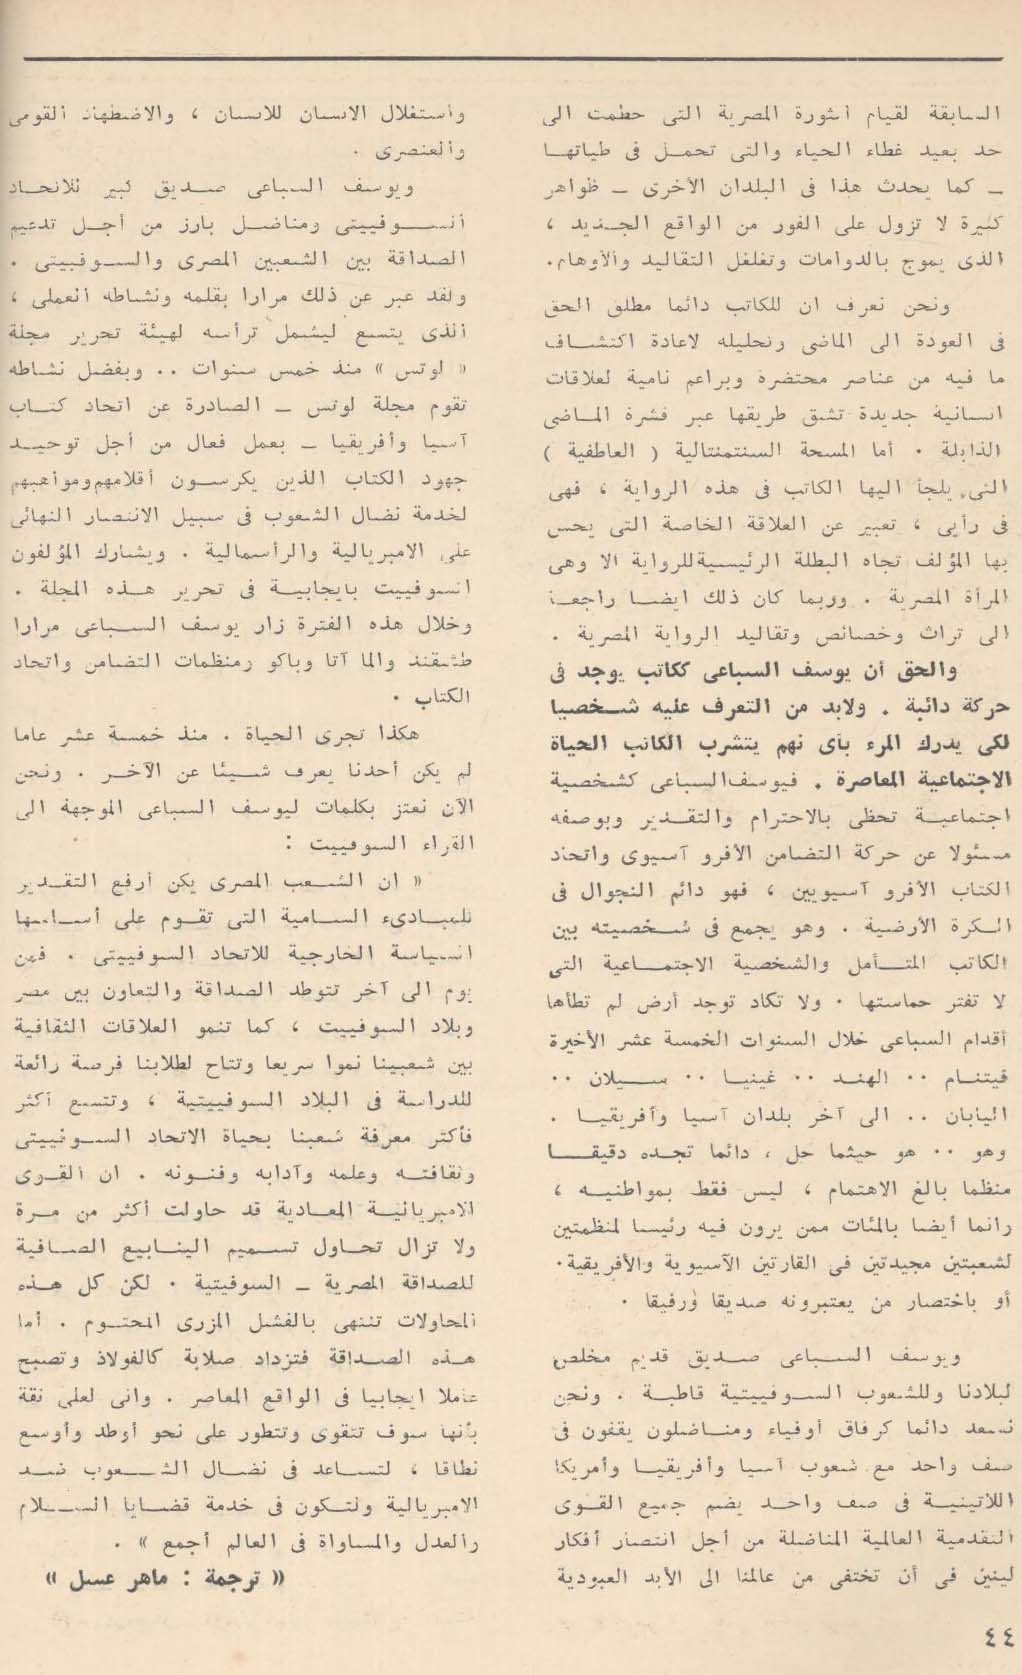 السابقة لقيام الثورة المصرية التى حطمت الى
حد بعيد غطاء الحياء والتى تحمل فى طياتها
ـ كما يحدث هذا فى البلدان الأخرى ـ ظواهر
كثيرة لا تزول على الفور من الواقع الجديد ،
الذى يموج بالدوامات وتغلغل التقاليد والأوهام.
ونحن نعرف ان للكاتب دائما مطلق الحق
فى العودة الى الماضى وتحليله لاعادة اكتشاف
ما فيه من عناصر محتضرة وبراعم نامية لعلاقات
انسانية جديدة تشق طريقها عبر قشرة الماضى
الذابلة . أما المسحة السنتمنتالية ( العاطفية )
التى يلجأ اليها الكاتب فى هذه الرواية ، فهى
فى رأيى ، تعبير عن العلاقة الخاصة التى يحس
بها المؤلف تجاه البطلة الرئيسية للرواية الا وهى
المرأة المصرية . وربما كان ذلك ايضا راجعا
الى تراث وخصائص وتقاليد الرواية المصرية .
والحق أن يوسف السباعى ككاتب يوجد فى
حركة دائبة . ولابد من التعرف عليه شخصيا
لكى يدرك المرء بأى نهم يتشرب الكاتب الحياة
الاجتماعية المعاصرة . فيوسف السباعى كشخصية
اجتماعية تحظى بالاحترام والتقدير وبوصفه
مسئولا عن حركة التضامن الأفرو آسيوى واتحاد
الكتاب الأفرو آسيويين ، فهو دائم التجوال فى
الكرة الأرضية . وهو يجمع فى شخصيته بين
الكاتب المتأمل والشخصية الاجتماعية التى
لا تفتر حماستها . ولا تكاد توجد أرض لم تطأها
أقدام السباعى خلال السنوات الخمسة عشر الأخيرة
فيتنام .. الهند .. غينيا .. سيلان ..
اليابان .. الى آخر بلدان آسيا وأفريقيا .
وهو .. هو حيثما حل ، دائما تجده دقيقا
منظما بالغ الاهتمام ، ليس فقط بمواطنيه ،
وانما أيضا بالمئات ممن يرون فيه رئيسا لمنظمتين
لشعبتين مجيدتين فى القارتين الآسيوية والأفريقية.
أو باختصار من يعتبرونه صديقا ورفيقا .
ويوسف السباعى صديق قديم مخلص
لبلادنا وللشعوب السوفييتية قاطبة . ونحن
نسعد دائما كرفاق أوفياء ومناضلون يقفون فى
صف واحد مع شعوب آسيا وأفريقيا وأمريكا
اللاتينية فى صف واحد يضم جميع القوى
التقدمية العالمية المناضلة من أجل انتصار أفكار
لينين فى أن تختفى من عالمنا الى الأبد العبودية
واستغلال الانسان للانسان ، والاضطهاد القومى
والعنصرى .
ويوسف السباعى صديق كبير للاتحاد
السوفييتى ومناضل بارز من أجل تدعيم
الصداقة بين الشعبين المصرى والسوفييتى .
ولقد عبر عن ذلك مرارا بقلمه ونشاطه العملى ،
الذى يتسع ليشمل ترأسه لهيئة تحرير مجلة
« لوتس » منذ خمس سنوات .. وبفضل نشاطه
تقوم مجلة لوتس ـ الصادرة عن اتحاد كتاب
آسيا وأفريقيا ـ بعمل فعال من أجل توحيد
جهود الكتاب الذين يكرسون أقلامهم ومواهبهم
لخدمة نضال الشعوب فى سبيل الانتصار النهائى
على الامبريالية والرأسمالية . ويشارك المؤلفون
السوفييت بايجابية فى تحرير هذه المجلة .
وخلال هذه الفترة زار يوسف السباعى مرارا
طشقند والما آتا وباكو ومنظمات التضامن واتحاد
الكتاب .
هكذا تجرى الحياة . منذ خمسة عشر عاما
لم يكن أحدنا يعرف شيئا عن الآخر . ونحن
الآن نعتز بكلمات ليوسف السباعى الموجهة الى
القراء السوفييت :
« ان الشعب المصرى يكن أرفع التقدير
للمبادىء السامية التى تقوم على أساسها
السياسة الخارجية للاتحاد السوفييتى . فمن
يوم الى آخر تتوطد الصداقة والتعاون بين مصر
وبلاد السوفييت ، كما تنمو العلاقات الثقافية
بين شعبينا نموا سريعا وتتاح لطلابنا فرصة رائعة
للدراسة فى البلاد السوفييتية ، وتتسع أكثر
فأكثر معرفة شعبنا بحياة الاتحاد السوفييتى
وثقافته وعلمه وآدابه وفنونه . ان القوى
الامبريالية المعادية قد حاولت أكثر من مرة
ولا تزال تحاول تسميم الينابيع الصافية
للصداقة المصرية ـ السوفيتية . لكن كل هذه
المحاولات تنتهى بالفشل المزرى المحتوم . أما
هذه الصداقة فتزداد صلابة كالفولاذ وتصبح
عاملا ايجابيا فى الواقع المعاصر . وانى لعلى ثقة
بأنها سوف تتقوى وتتطور على نحو أوطد وأوسع
نطاقا ، لتساعد فى نضال الشعوب ضد
الامبريالية ولتكون فى خدمة قضايا السلام
والعدل والمساواة فى العالم أجمع » .
« ترجمة : ماهر عسل »
٤٤